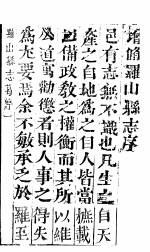 增修羅山縣志序
邑有志無不識也凡生之自天
產之自地為之自人皆當摭載
以備政教之權衡而其所以維
風道萬勸懲者則人事之得失
為尤要焉余不敏承乏於羅至
羅山縣志